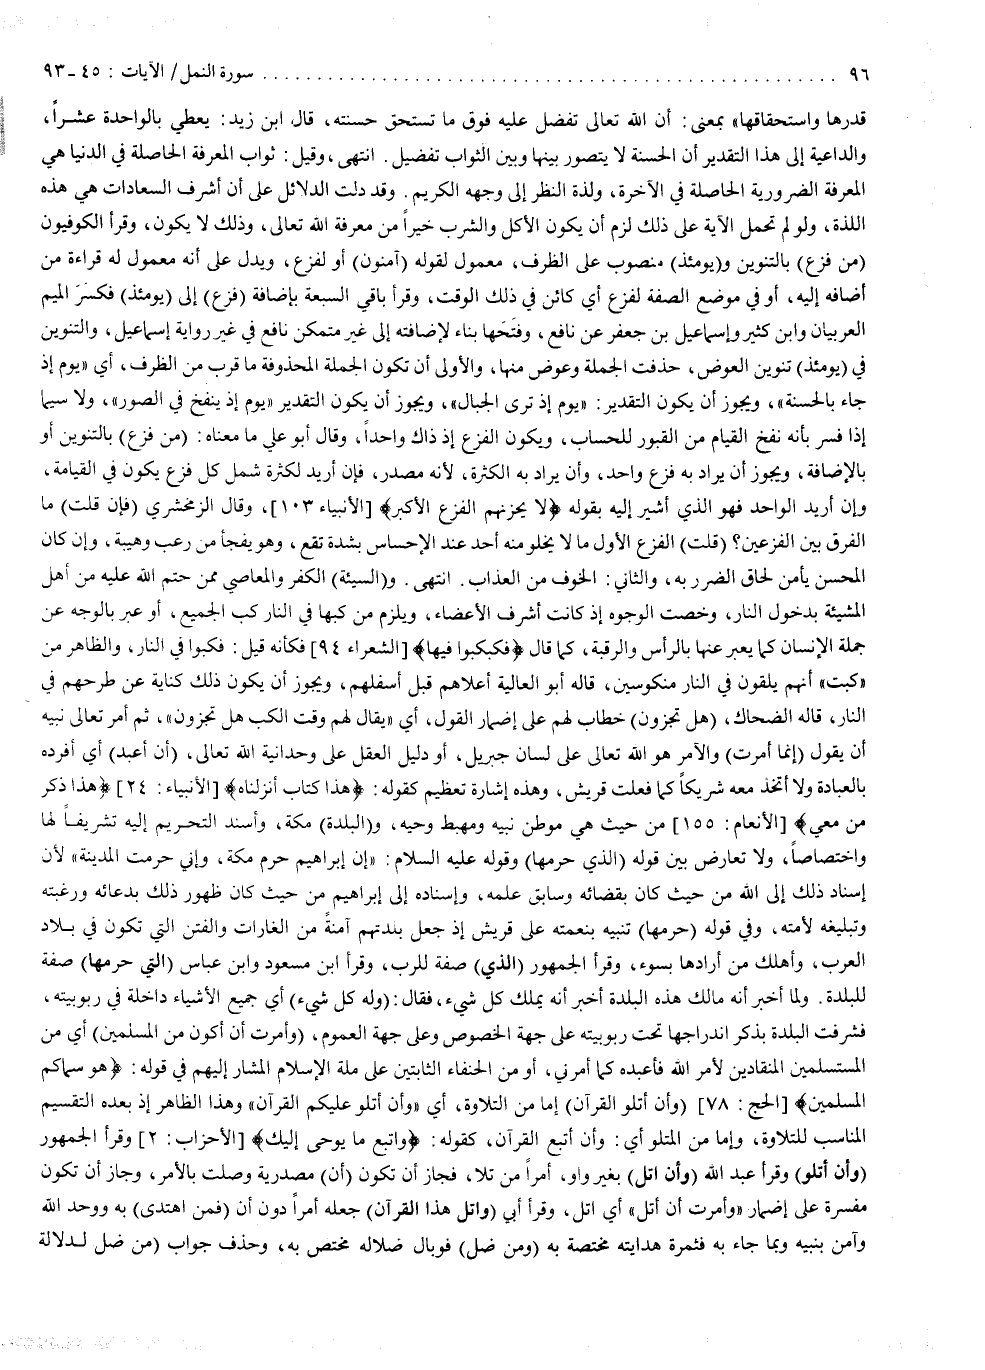 ٩٦ ........................................ سورة النمل/ الآيات : ٤٥ ـ ٩٣
قدرها واستحقاقها» بمعنى: أن الله تعالى تفضل عليه فوق ما تستحق حسنته، قال ابن زيد: يعطي بالواحدة عشـراً،
والداعية إلى هذا التقدير أن الحسنة لا يتصور بينها وبين الثواب تفضيل. انتهى، وقيل: ثواب المعرفة الحاصلة في الدنيا هي
المعرفة الضرورية الحاصلة في الآخرة، ولذة النظر إلى وجهه الكريم. وقد دلت الدلائل على أن أشرف السعادات هي هذه
اللذة، ولو لم تحمل الآية على ذلك لزم أن يكون الأكل والشرب خيراً من معرفة الله تعالى، وذلك لا يكون، وقرأ الكوفيون
(من فزع) بالتنوين و(يومئذ) منصوب على الظرف، معمول لقوله (آمنون) أو لفزع، ويدل على أنه معمول له قراءة من
أضافه إليه، أو في موضع الصفة لفزع أي كائن في ذلك الوقت، وقرأ باقي السبعة بإضافة (فزع) إلى (يومئذ) فكسَرَ الميم
العربيان وابن كثير وإسماعيل بن جعفر عن نافع، وفتَحَها بناء لإضافته إلى غير متمكن نافع في غير رواية إسماعيل، والتنوين
في (يومئذ) تنوين العوض، حذفت الجملة وعوض منها، والأولى أن تكون الجملة المحذوفة ما قرب من الظرف، أي «يوم إذ
جاء بالحسنة»، ويجوز أن يكون التقدير: «يوم إذ ترى الجبال»، ويجوز أن يكون التقدير «يوم إذ ينفخ في الصور»، ولا سيما
إذا فسر بأنه نفخ القيام من القبور للحساب، ويكون الفزع إذ ذاك واحداً، وقال أبو علي ما معناه: (من فزع) بالتنوين أو
بالإضافة، ويجوز أن يراد به فزع واحد، وأن يراد به الكثرة، لأنه مصدر، فإن أريد لكثرة شمل كل فزع يكون في القيامة،
وإن أريد الواحد فهو الذي أشير إليه بقوله ﴿لا يحزنهم الفزع الأكبر﴾ [الأنبياء ١٠٣]، وقال الزمخشري (فإن قلت) ما
الفرق بين الفزعين؟ (قلت) الفزع الأول ما لا يخلو منه أحد عند الإحساس بشدة تقع، وهو يفجأ من رعب وهيبة، وإن كان
المحسن يأمن لحاق الضرر به، والثاني: الخوف من العذاب. انتهى. و(السيئة) الكفر والمعاصي ممن حتم الله عليه من أهل
المشيئة بدخول النار، وخصت الوجوه إذ كانت أشرف الأعضاء، ويلزم من كبها في النار كب الجميع، أو عبر بالوجه عن
جملة الإنسان كما يعبر عنها بالرأس والرقبة، كما قال ﴿فكبكبوا فيها﴾ [الشعراء ٩٤] فكأنه قيل: فكبوا في النار، والظاهر من
«كبت» أنهم يلقون في النار منكوسين، قاله أبو العالية أعلاهم قبل أسفلهم، ويجوز أن يكون ذلك كناية عن طرحهم في
النار، قاله الضحاك، (هل تجزون) خطاب لهم على إضمار القول، أي «يقال لهم وقت الكب هل تجزون»، ثم أمر تعالى نبيه
أن يقول (إنما أمرت) والآمر هو الله تعالى على لسان جبريل، أو دليل العقل على وحدانية الله تعالى، (أن أعبد) أي أفرده
بالعبادة ولا أتخذ معه شريكاً كما فعلت قريش، وهذه إشارة تعظيم كقوله: ﴿هذا كتاب أنزلناه﴾ [الأنبياء: ٢٤] ﴿هذا ذكر
من معي﴾ [الأنعام: ١٥٥] من حيث هي موطن نبيه ومهبط وحيه، و(البلدة) مكة، وأسند التحريم إليه تشريفـاً لها
واختصاصاً، ولا تعارض بين قوله (الذي حرمها) وقوله عليه السلام: «إن إبراهيم حرم مكة، وإني حرمت المدينة» لأن
إسناد ذلك إلى الله من حيث كان بقضائه وسابق علمه، وإسناده إلى إبراهيم من حيث كان ظهور ذلك بدعائه ورغبته
وتبليغه لأمته، وفي قوله (حرمها) تنبيه بنعمته على قريش إذ جعل بلدتهم آمنةً من الغارات والفتن التي تكون في بـلاد
العرب، وأهلك من أرادها بسوء، وقرأ الجمهور (الذي) صفة للرب، وقرأ ابن مسعود وابن عباس (التي حرمها) صفة
للبلدة. ولما أخبر أنه مالك هذه البلدة أخبر أنه يملك كل شيء، فقال: (وله كل شيء) أي جميع الأشياء داخلة في ربوبيته،
فشرفت البلدة بذكر اندراجها تحت ربوبيته على جهة الخصوص وعلى جهة العموم، (وأمرت أن أكون من المسلمين) أي من
المستسلمين المنقادين لأمر الله فأعبده كما أمرني، أو من الحنفاء الثابتين على ملة الإسلام المشار إليهم في قوله: ﴿هو سماكم
المسلمين﴾ [الحج: ٧٨] (وأن أتلو القرآن) إما من التلاوة، أي «وأن أتلو عليكم القرآن» وهذا الظاهر إذ بعده التقسيم
المناسب للتلاوة، وإما من المتلو أي: وأن أتبع القرآن، كقوله: ﴿واتبع ما يوحى إليك﴾ [الأحزاب: ٢] وقرأ الجمهور
(وأن أتلو) وقرأ عبد الله (وأن اتل) بغير واو، أمراً من تلا، فجاز أن تكون (أن) مصدرية وصلت بالأمر، وجاز أن تكون
مفسرة على إضمار «وأمرت أن أتل» أي اتل، وقرأ أبي (واتل هذا القرآن) جعله أمراً دون أن (فمن اهتدى) به ووحد الله
وآمن بنبيه وبما جاء به فثمرة هدايته مختصة به (ومن ضل) فوبال ضلاله مختص به، وحذف جواب (من ضل لـدلالة